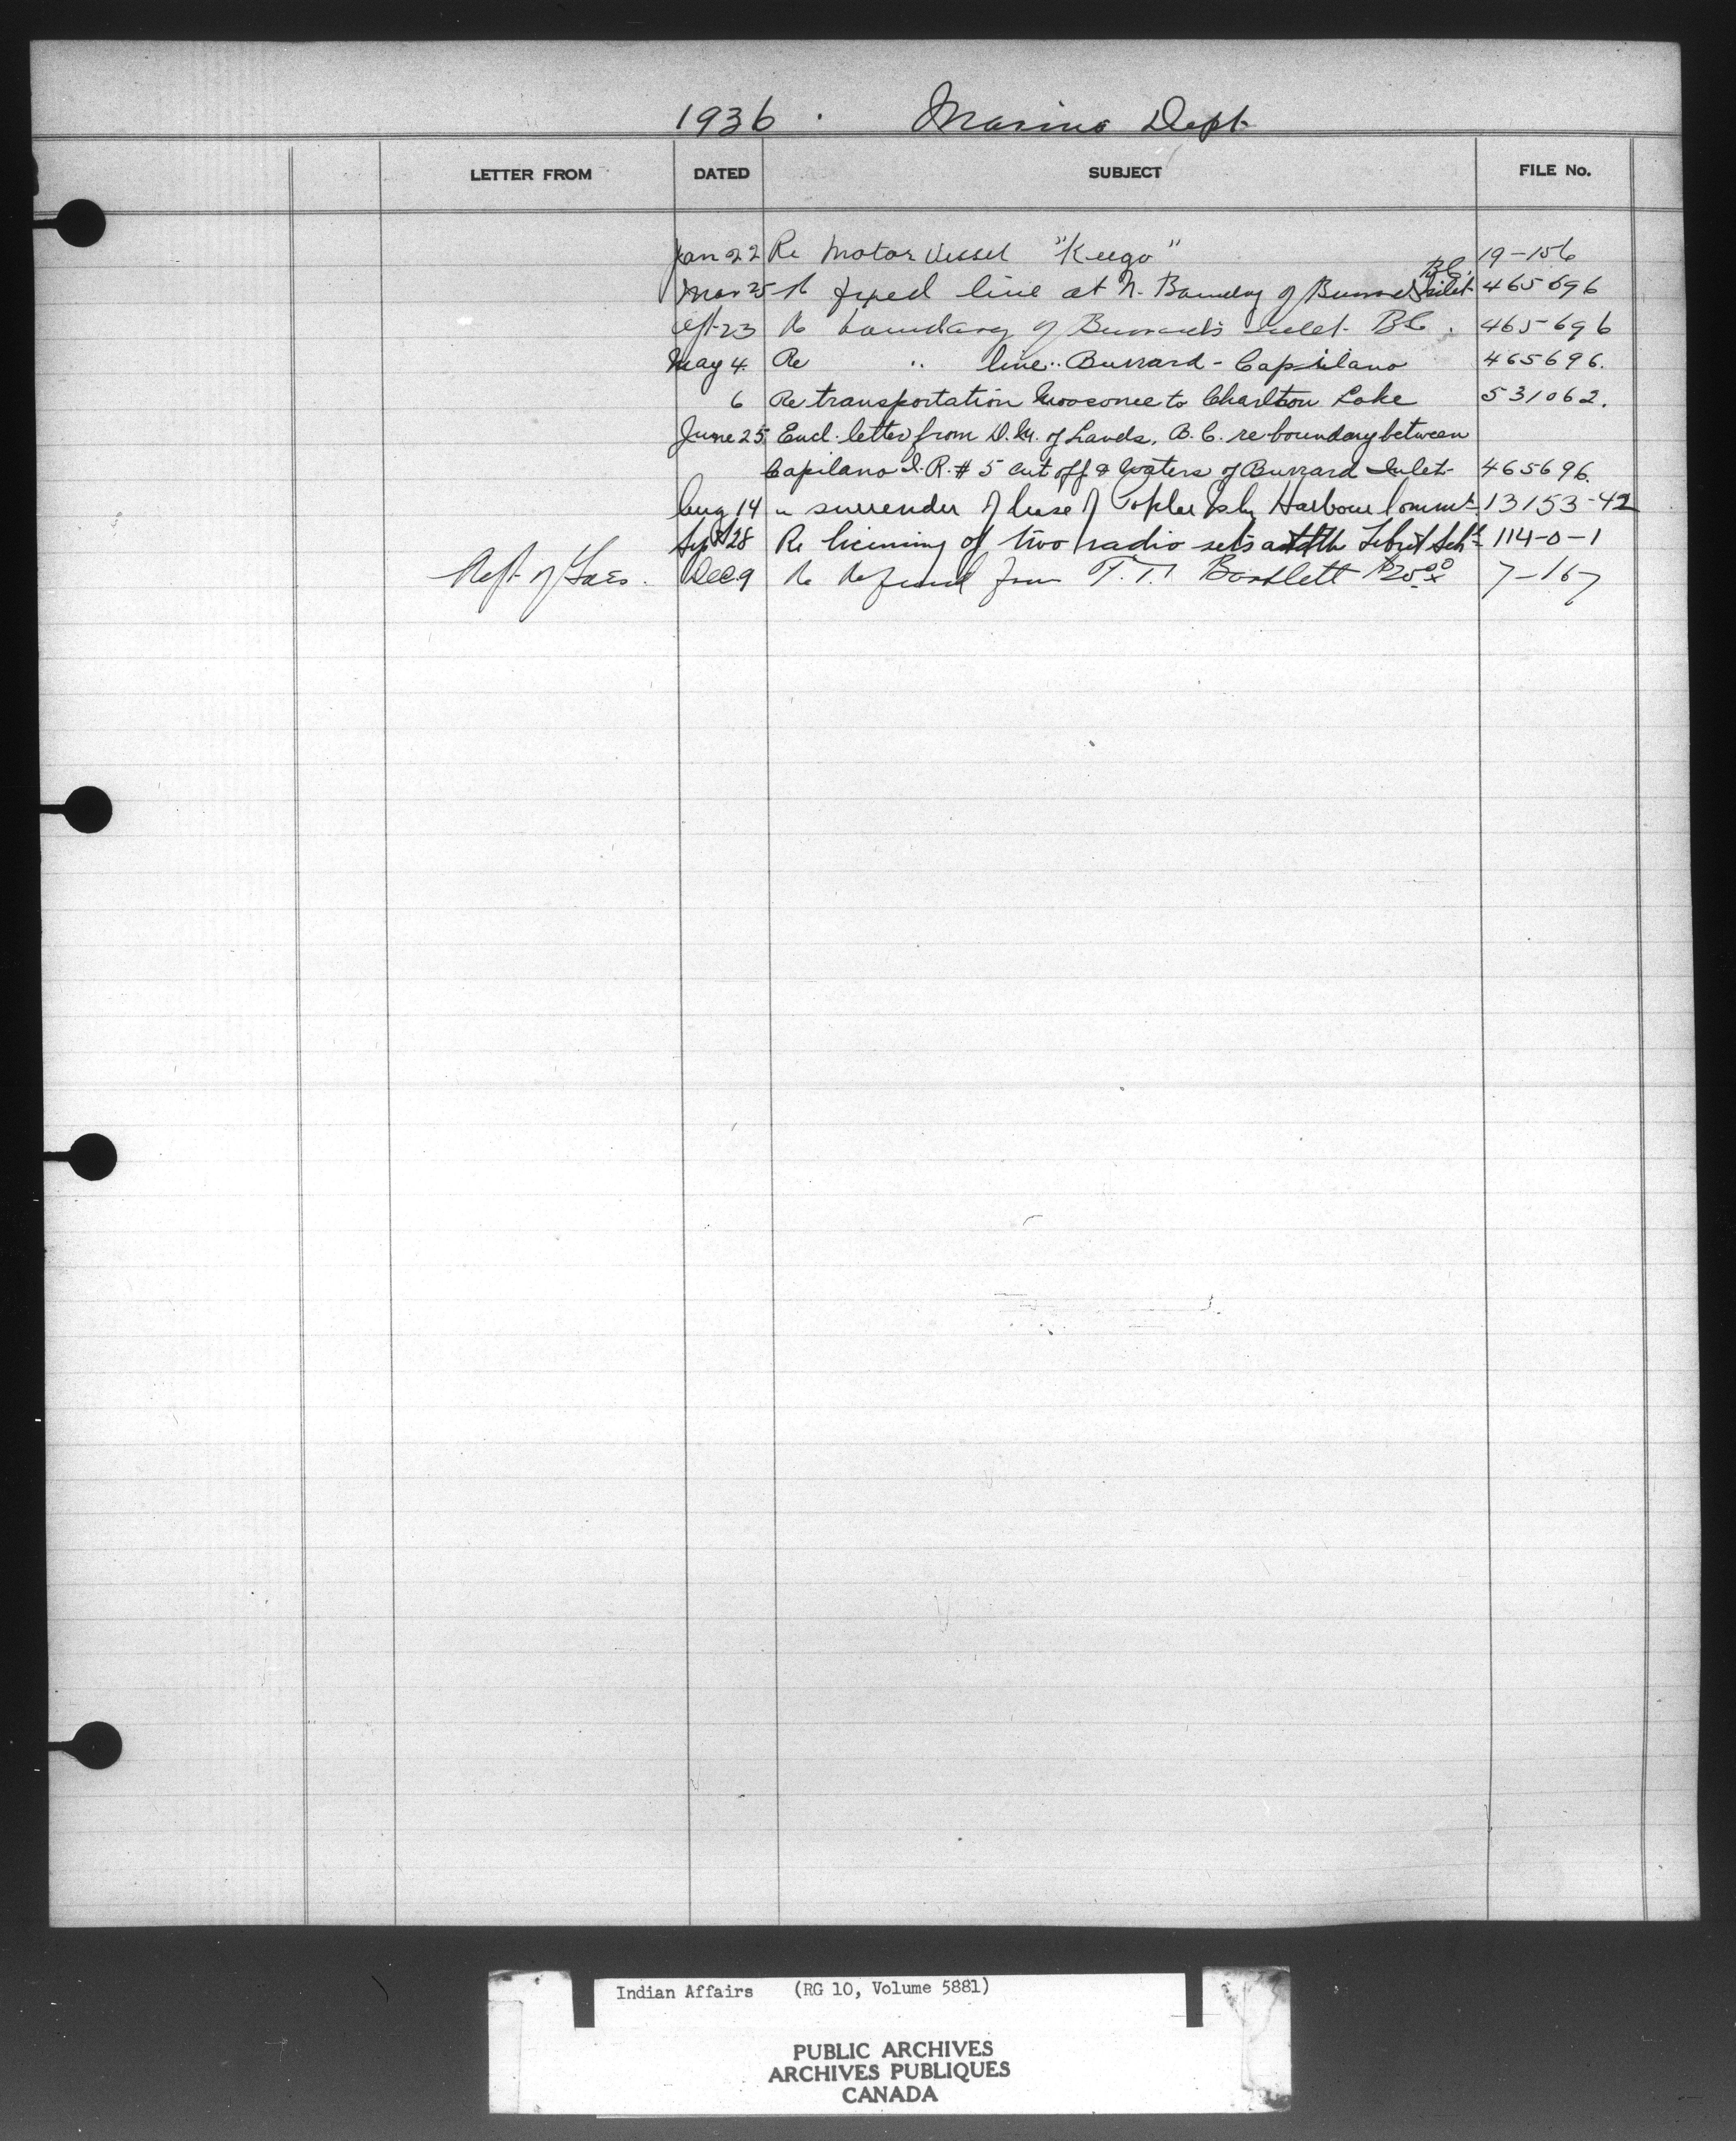 1936 . Marine Dept
LETTER FROM DATED SUBJECT FILE No.
Jan 22 Re Motor Vessel "Keego" 19-156
B.C.
Mar 25 Re fixed line at N. Boundry of Burrard Inlet 465696
Apr 23 Re boundary of Burrards Inlet B.C. 465696
May 4 Re " line " Burrard - Capilano 465696.
6 Re transportation Moosonee to Charlton Lake 531062.
June 25 Encl. letter from D.M. of Lands, B.C. re boundary between
Capilano I.R. # 5 cut off & Waters of Burrard Inlet 465696.
Aug 14 " surrender of lease of Poplar Isly Harbour Commn 13153-42
Sept 28 Re licensing of two radio sets at the Lebret Schl 114-0-1
Dept of Dec 9 Re Refund from T.T. Bartlett $25.00 7-167
Indian Affairs (RG 10, Volume 5881)
PUBLIC ARCHIVES
ARCHIVES PUBLIQUES
CANADA